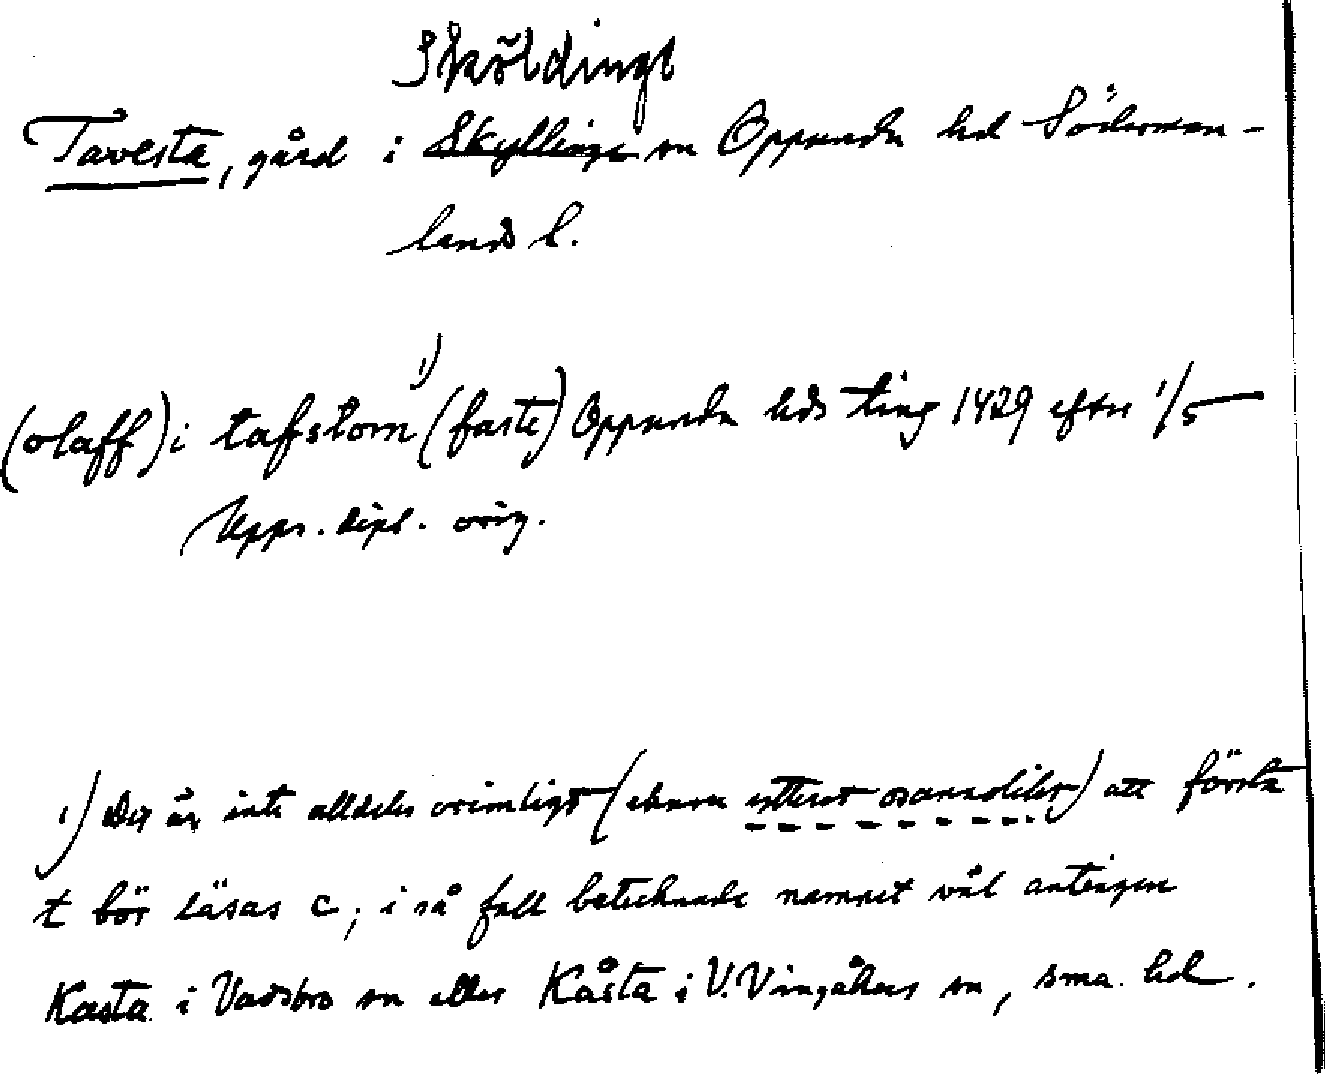 Sköldinge
Tavesta, gård i Skyllinge sn Oppunda hd Söderman-
lands l.
(olaff) i tafstom 1) (faste) Oppunda hds ting 1429 efter 1/5
Upps. dipl. orig.
1) Det är inte alldeles orimligt (ehuru ytterst osannolikt) att första
t bör läsas c, i så fall betecknade namnet väl antingen
Kasta i Vadsbro sn eller Kåsta i V. Vingåkers sn, sma. hd.